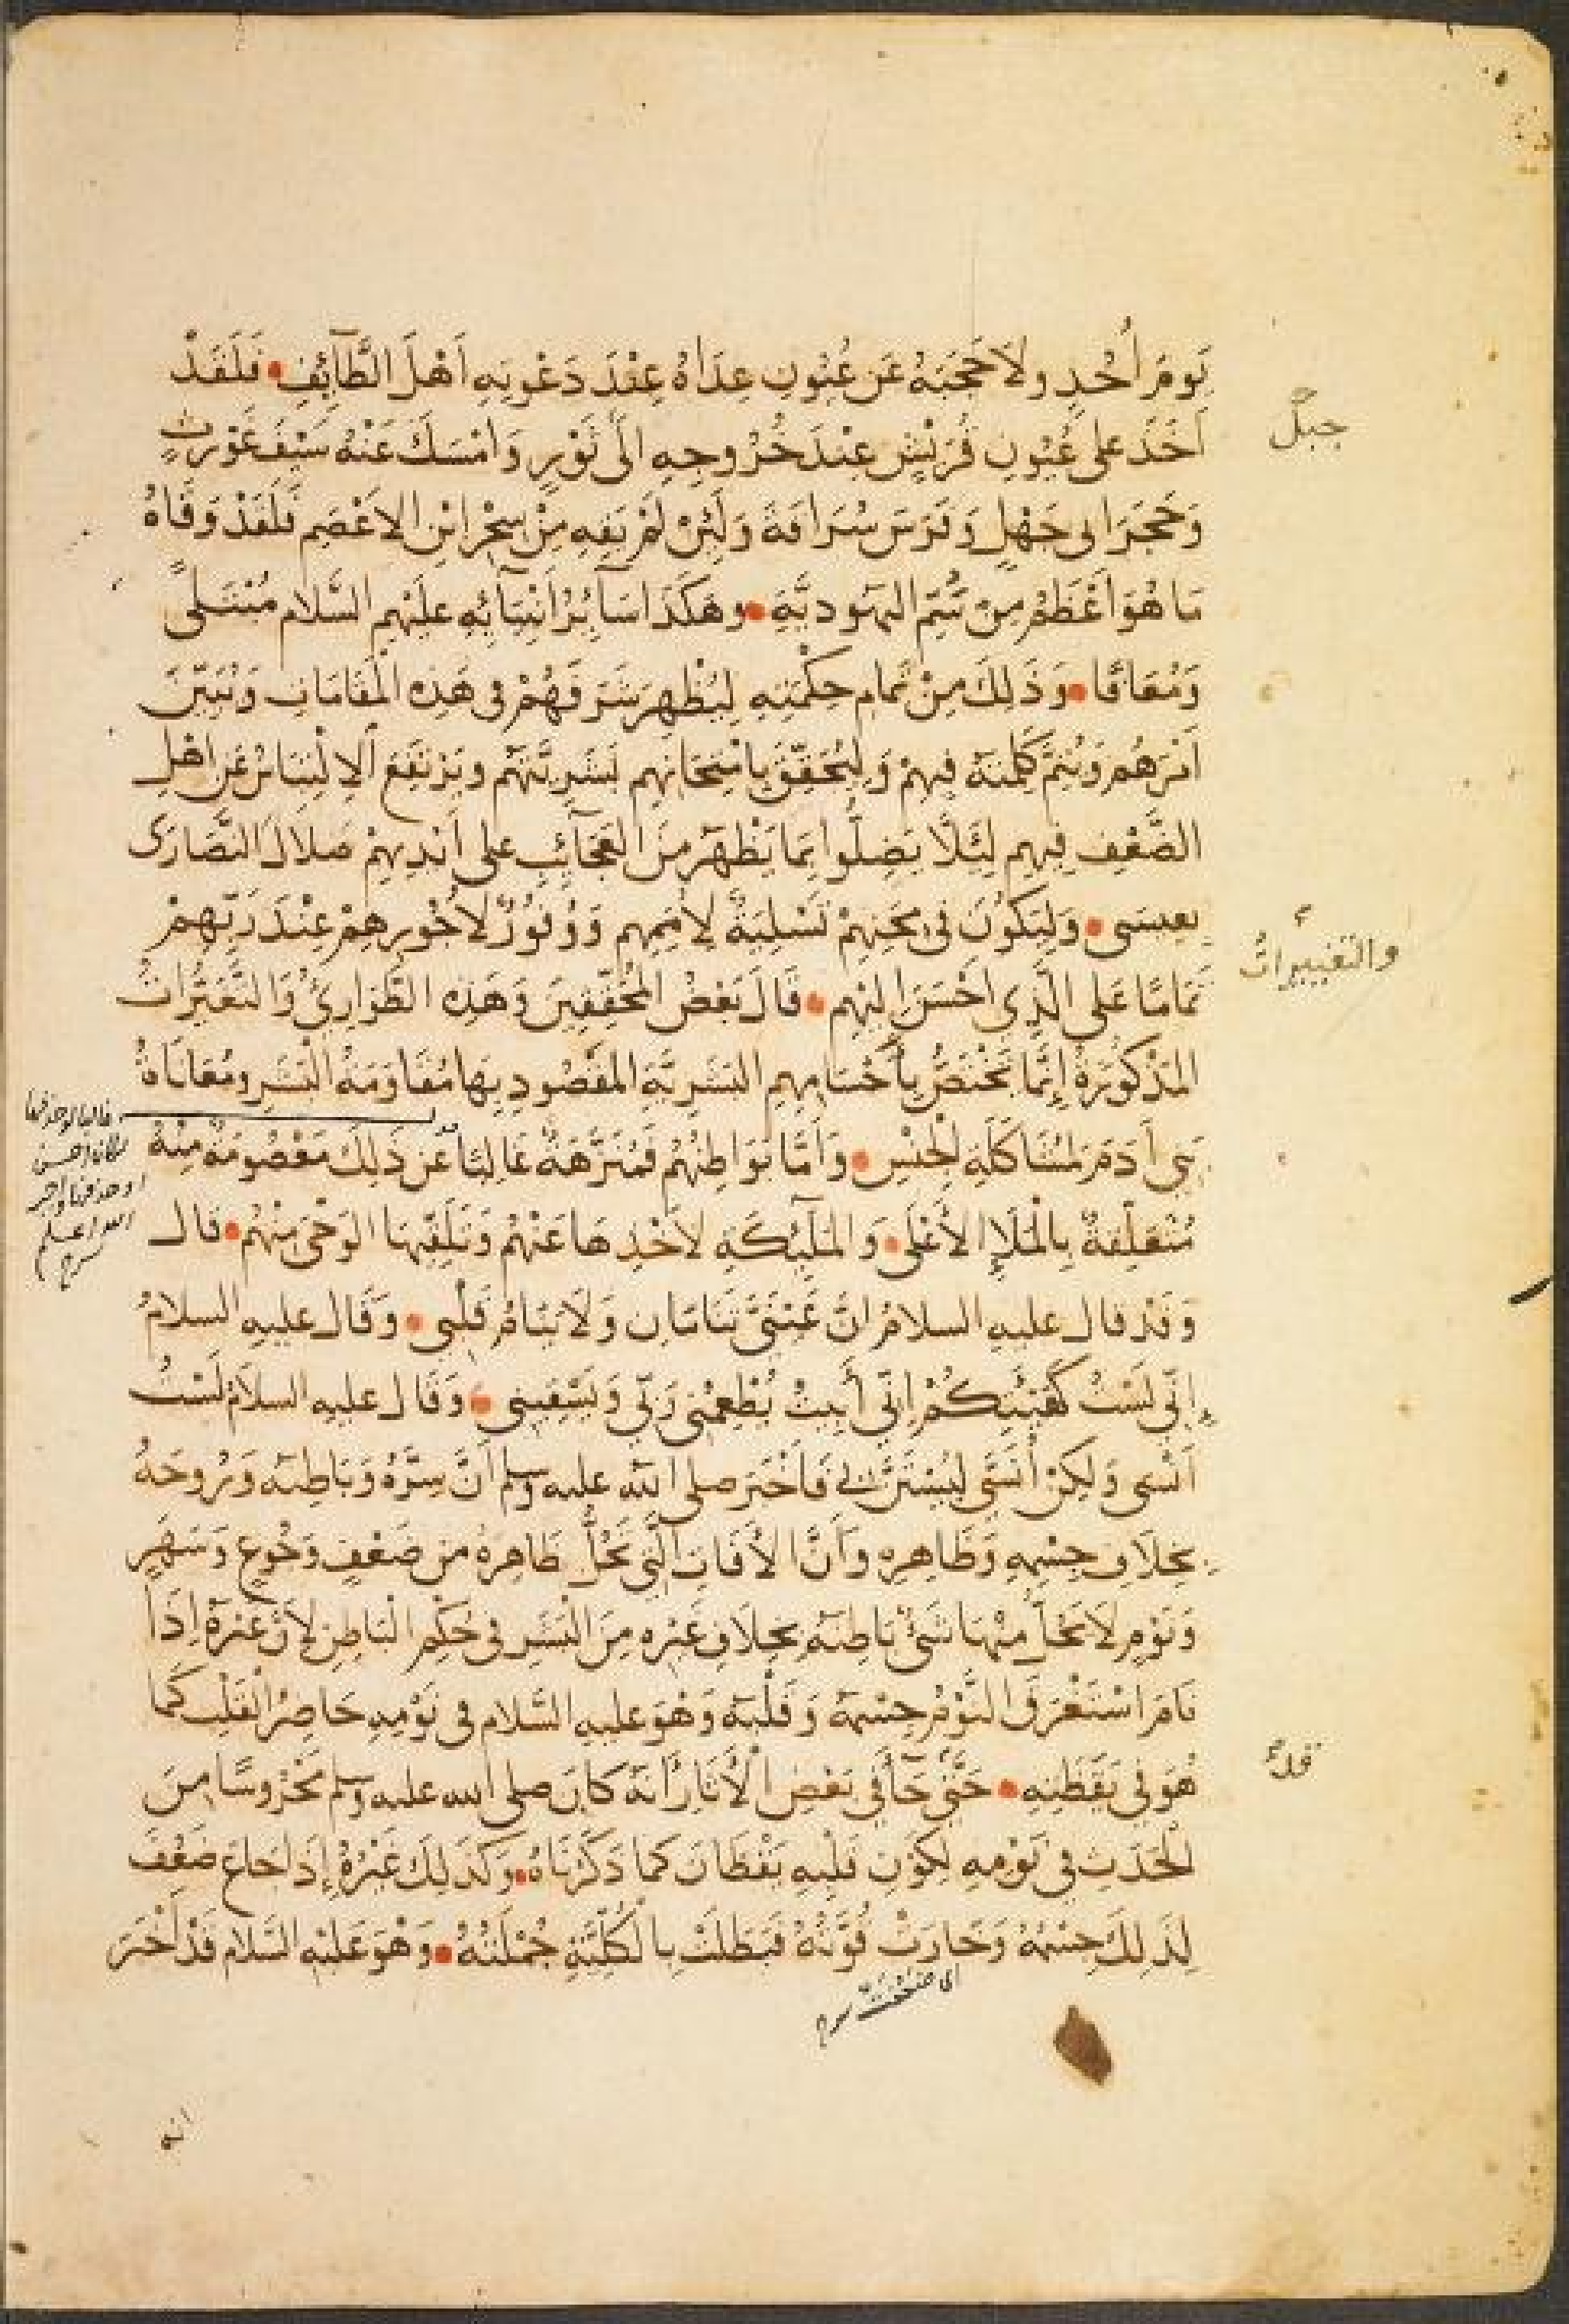 يَومَ أُحُدٍ ولا حَجَبَهُ عَن عُيُونِ عِدَاهُ عِنْدَ دَعْوَتِهِ أَهْلَ الطَّآئِفِ • فَلَقَدْ
جبل
أَخَذَ على عُيُونِ قُرَيْشٍ عِنْدَ خُرُوجِهِ الَى ثَوْرٍ وَأَمْسَكَ عَنْهُ سَيْفَ غَوْرثٍ
وَحَجَرَ ابى جَهْلٍ وَفَرَسَ سُرَاقَةَ وَلَئِنْ لَمْ يَقِهِ مِنْ سِحْرِ ابْنِ الاَعْصَمِ فَلَقَدْ وَقَاهُ
مَا هُوَ أَعْظَمُ مِنْ سُمِّ اليَهُوديَّةِ • وهَكَذَا سَآئِرُ أَنْبِيَآئِهِ عَلَيْهِمِ السَّلام مُبْتَلىً
وَمُعَافًا • وَذَلِكَ مِنْ تَمَامِ حِكْمَتِهِ لِيُظْهِرَ شَرَفَهُمْ فى هَذِهِ الْمَقَامَاتِ وَيُبَيِّنَ
أَمْرَهُمْ وَيُتِمَّ كَلِمَتَهُ فِيهِمْ وَلِيُحَقِّقَ بِامْتِحَانِهِم بَشَرِيَّتَهُمْ ويَرْتَفِعَ الاِلْتِبَاسُ عَن اهْلِ
الضَّعْفِ فِيهِم لِئَلَّا يَضِلُّوا بِمَا يَظْهَرُ مِنَ العَجَآئِبِ على أَيْدِيهِمْ ضَلَالَ النَّصَارَى
بعِيسَى • وَلِيَكُونَ فى مِحَنِهِمْ تَسْلِيَةٌ لِأُمَمِهِم وَوُفُورٌ لأُجُورِهِمْ عِنْدَ رَبِّهِمْ
والتغييرات
تَمَامًا عَلَى الَّذِي أَحْسَنَ إِلَيْهِم • قَالَ بَعْضُ المُحَقِّقِينَ وَهَذِهِ الطَّوَارِئُ وَالتَّغَيُّرَاتُ
المَذْكُورَةُ إِنَّمَا تَخْتَصُّ بِأَجْسَامِهِمِ البَشَرِيَّةِ المَقْصُودِ بِهَا مُقَاوَمَةُ الْبَشَرِ ومُعَانَاةُ
بَنِي آدَمَ لِمُشَاكَلَةِ الْجِنْسِ • وَأَمَّا بَوَاطِنُهُم فَمُنَزَّهَةٌ غَالِبًا عَن ذَلِكَ مَعْصُومَةٌ مِنْهُ
غالبا لو حذفها
لكان احسن
والله اعلم
مُتَعَلِّقةٌ بِالْمَلَإِ الأَعْلَى • وَالمَلَآئِكَةِ لأَخْذِهَا عَنْهُم وَتَلَقِّيهَا الوَحْىَ مِنْهُم • قال
وَقَدْ قال عليهِ السلامُ انَّ عَيْنَيَّ تَنَامَانِ وَلَا يَنَامُ قَلْبى • وَقَال عليهِ السلامُ
إِنِّى لَسْتُ كَهَيْئَتِكُمْ إِنِّى أَبِيتُ يُطْعِمُنى رَبِّى وَيَسْقِينى • وَقَال عليهِ السلامُ لَسْتُ
أَنْسى وَلَكِنْ أُنَسَّى لِيُسْتَنَّ بى فَأَخْبَرَ صلى الله عليه وسلم أَنَّ سِرَّهُ وَبَاطِنَهُ وَرُوحَهُ
بِخِلَافِ جِسْمِهِ وَظَاهِرِهِ وَأَنَّ الأَفَاتِ الَّتِى تَحُلُّ ظَاهِرَهُ مِن ضَعْفٍ وَجُوعٍ وَسَهَرٍ
وَنَوْمٍ لَا يَحُلُّ مِنْهَا شَىْءٌ بَاطِنَهُ بِخِلَافِ غَيْرِهِ مِنَ الْبَشَرِ فى حُكْمِ الْبَاطِنِ لأَنَّ غَيْرَهُ إِذَا
نَامَ اسْتَغْرَقَ النَّوْمُ جِسْمَهُ وَقَلْبَهُ وَهُوَ عليهِ السَّلام فى نَوْمِهِ حَاضِرُ القَلْبِ كَمَا
هُوَ فى يَقَظَتِهِ • حَتَّى جَآءَ فى بَعْضِ الْأَثَارِ أَنَّهُ كَانَ صلى الله عليه وسلم مَحْرُوسًا مِنَ
الحَدَثِ فى نَوْمِهِ لِكَوْنِ قَلْبِهِ يَقْظَانَ كَمَا ذَكَرْنَاهُ • وَكَذَلِكَ غَيْرُهُ إِذَا جَاعَ ضَعُفَ
لِذَلِكَ جِسْمُهُ وَخَارَتْ قُوَّتُهُ فَبَطَلَتْ بِالْكُلِّيَّةِ جُمْلَتُهُ • وَهُوَ عَلَيْهِ السَّلام قَدْ أَخْبَرَ
اى ضعفت
انه